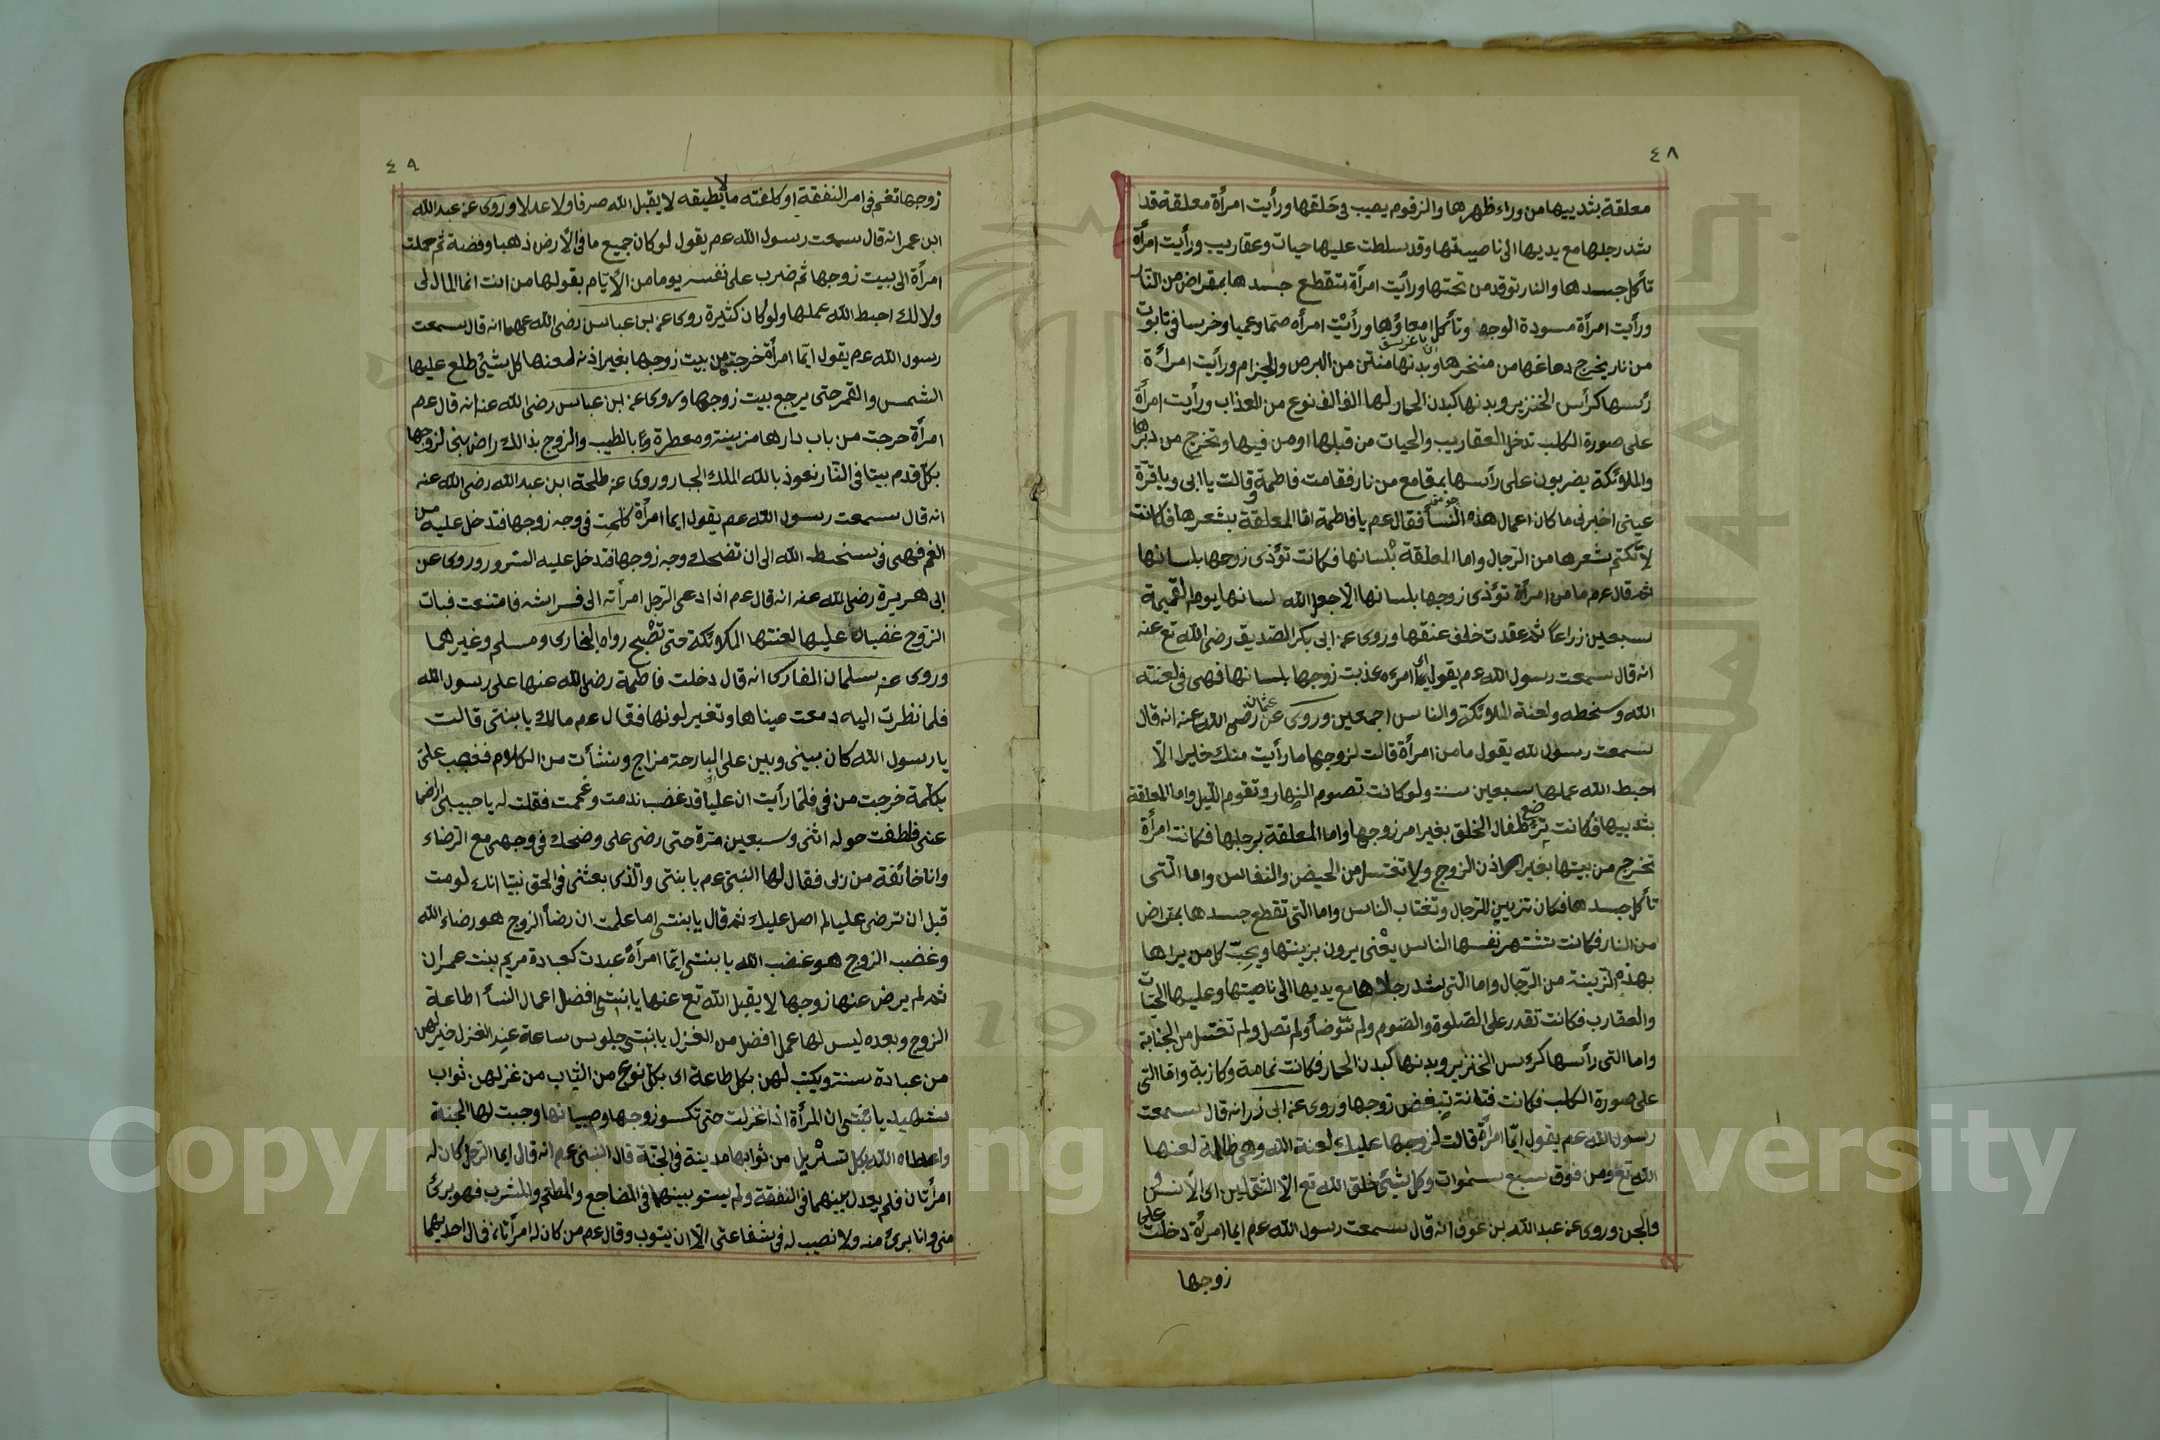 ٤٨
معلقة بثدييها من وراء ظهرها والزقوم يصيب فى حلقها ورأيت امرأة معلقة قد
شد رجلها مع يديها الى ناصيتها وقد سلطت عليها حيات وعقاريب ورأيت امرأة
تأكل جسدها والنار توقد من تحتها ورأيت امرأة تتقطع جسدها بمقراض من النار
ورأيت امرأة مسودة الوجه وتأكل امعاؤها ورأيت امرأه صما وعميا وخرسا فى تابوت
من نار يخرج دماغها من منخرها وبدنها منتن من البرص والجزام ورأيت امرأة
رئسها كرأس الخنزير وبدنها كبدن الحمار لها الف الف نوع من العذاب ورأيت امرأة
على صورة الكلب تدخل العقاريب والحيات من قبلها او من فيها وتخرج من دبرها
والملائكة يضربون على رأسها بمقامع من نار فقامت فاطمة وقالت يا ابى ويا قرة
عينى اخبرنى ما كان اعمال هذه النسأ فقال عم يا فاطمة اما المعلقة بشعرها فكانت
لا تكتم شعرها من الرجال واما المعلقة بلسانها فكانت تؤذى زوجها بلسانها
ثم قال عم ما من امرأة تؤذى زوجها بلسانها الا جعل الله لسانها يوم القيمة
سبعين زراعا ثم عقدت خلف عنقها وروى عن ابى بكر الصديق رضى الله تع عنه
انه قال سمعت رسول الله عم يقول ايما امرءه عذبت زوجها بلسانها فهى فى لعنته
الله وسخطه ولعنة الملائكة والناس اجمعين وروى عن عثمان رضى الله عنه انه قال
سمعت رسول الله يقول ما من امرأة قالت لزوجها ما رأيت منك خايرا الا
احبط الله عملها سبعين سنة ولو كانت تصوم النهار وتقوم الليل واما المعلقة
بثدييها فكانت ترضع طفال الخلق بغير امر زوجها واما المعلقة برجلها فكانت امرأة
تخرج من بيتها بغير اذن الزوج ولا تغتسل من الحيض والنفاس واما التى
تأكل جسدها فكان تزيين للرجال وتغتاب الناس واما التى تقطع جسدها بمقراض
من النار فكانت تشتهر نفسها الناس يعنى يرون بزينتها ويحب كل من يراها
بهذه الزينة من الرجال واما التى شد رجلاها مع يديها الى ناصيتها وعليها الحيات
والعقارب فكانت تقدر على الصلوة والصوم ولم تتوضأ ولم تصل ولم تغتسل من الجنابة
واما التى رأسها كرءس الخنزير وبدنها كبدن الحمار فكانت نمامة وكازبة واما التى
على صورة الكلب فكانت فتانة تبغض زوجها وروى عن ابى زر انه قال سمعت
رسول الله عم يقول ايما امرأة قالت لزوجها عليك لعنة الله وهى ظالمة لعنها
الله تع ومن فوق سبع سموات وكل شئ خلق الله تع الا الثقلين اى الانس
والجن وروى عن عبد الله بن عوف انه قال سمعت رسول الله عم ايما امرأة دخلت على
زوجها
٤٩
زوجها تغم فى امر النفقة او كلفته ما لا يطيقه لا يقبل الله صرفا ولا عدلا وروى عن عبد الله
ابن عمر انه قال سمعت رسول الله عم يقول لو كان جميع ما فى الأرض ذهبا وفضة ثم حملت
امرأة الى بيت زوجها ثم ضرب على نفسه يوما من الأيام بقولها من انت انما المال لى
ولا لك احبط الله عملها ولو كان كثيرة روى عن بن عباس رضى الله عنهما انه قال سمعت
رسول الله عم يقول ايما امرأة خرجت من بيت زوجها بغير اذنه لعنها كل شيئ طلع عليها
الشمس والقمر حتى يرجع بيت زوجها وروى عن ابن عباس رضى الله عنه انه قال عم
امرأة خرجت من باب دارها مزينة ومعطرة بالطيب والزوج بذالك راض بنى لزوجها
بكل قدم بيتا فى النار نعوذ بالله الملك الجبار وروى عن طلحة ابن عبد الله رضى الله عنه
انه قال سمعت رسول الله عم يقول ايما امرأة كلحت فى وجه زوجها فتدخل عليه من
الغم فهى فى سنخط الله الى ان تضحك وجه زوجها فتدخل عليه السرور وروى عن
ابى هريرة رضى الله عنه انه قال عم اذا دعى الرجل امرأته الى فراشه فامتنعت فبات
الزوج غضبان عليها لعنتها الملائكة حتى تصبح رواه البخارى ومسلم وغيرهما
وروى عن سلمان الفارى انه قال دخلت فاطمة رضى الله عنها على رسول الله
فلما نظرت اليه دمعت عيناها وتغير لونها فقال عم مالك يا بنتى قالت
يا رسول الله كان بينى وبين على البارحة مزاج ونشأت من الكلام فغضب على
بكلمة خرجت من فى فلما رأيت ان عليا قد غضب ندمت وغممت فقلت له يا حبيبى ارضا
عنى فلطفت حوله اثنى وسبعين مرة حتى رضى على وضحك فى وجهى مع الرضاء
وانا خائفة من ربى فقال لها النبى عم يا بنتى والذى بعثنى فى الحق نبيا انك لو مت
قبل ان ترضى عليا لم اصل عليك ثم قال يا بنتى اما علمت ان رضأ الزوج هو رضاء الله
وغضب الزوج هو غضب الله يا بنتى ايما امرأة عبدت كعبادة مريم بنت عمران
ثم لم يرض عنها زوجها لا يقبل الله تع عنها يا بنتى افضل اعمال النسأ اطاعة
الزوج وبعده ليس لها عمل افضل من الغزل يا بنتى جلوس ساعة عند الغزل خير لهن
من عبادة سنة ويكتب لهن بكل طاعة اى بكل نوع من الثياب من غزلهن ثواب
شهيد يا بنتى ان المرأة اذا غزلت حتى تكسو زوجها وصبيانها وجبت لها الجنة
واعطاه الله بكل تسربل من ثوابها مدينة فى الجنة قال النبى عم انه قال ايما الرجل كان له
امرأتان فلم يعدل بينهما فى النفقة ولم يستو بينهما فى المضاجع والمطعم والمشرب فهو برئ
منى وانا برئ منه ولا نصيب له فى شفاعتى الا ان يتوب وقال عم من كان له امرأتان فمال احديهما
Copyright © King Saud University